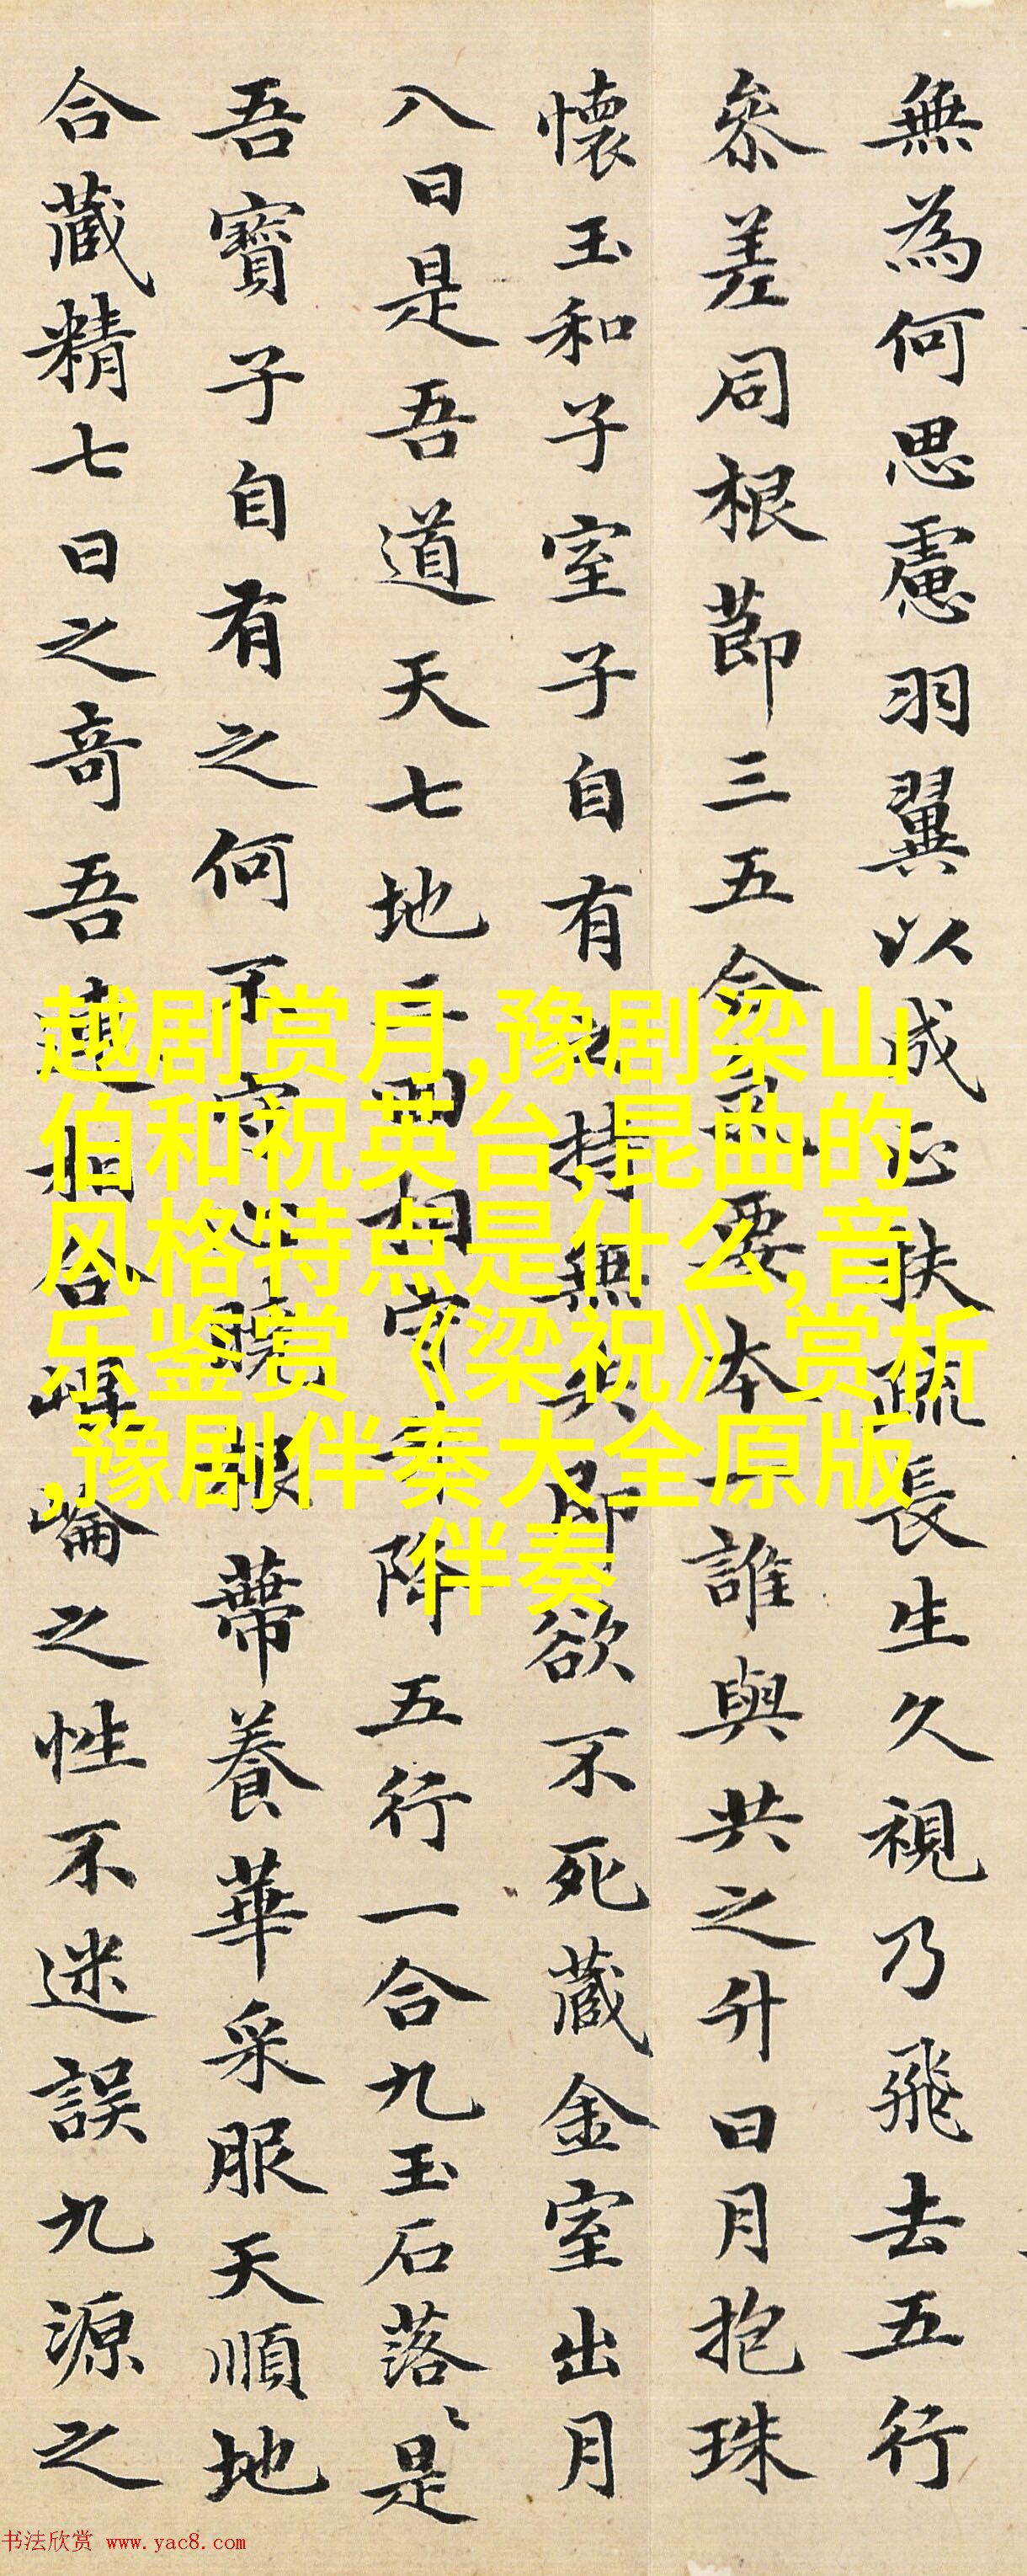 無為何思慮羽翼以成正扶疏長生久視乃飛去五行
叅差同根莭三五合氣要本一誰與共之升日月抱珠
懷玉和子室子自有之持無失即欲不死藏金室出月
八日是吾道天七地三回相守升降五行一合九玉石落〻是
吾寶子自有之何不守心曉根蔕養華采服天順地
合藏精七日之奇吾連相合崐崘之性不迷誤九源之
越剧赏月,豫剧梁山
伯和祝英台,昆曲的
风格特点是什么,音
乐鉴赏《梁祝》赏析
,豫剧伴奏大全原版
伴奏
书法欣赏 www.yac8.com